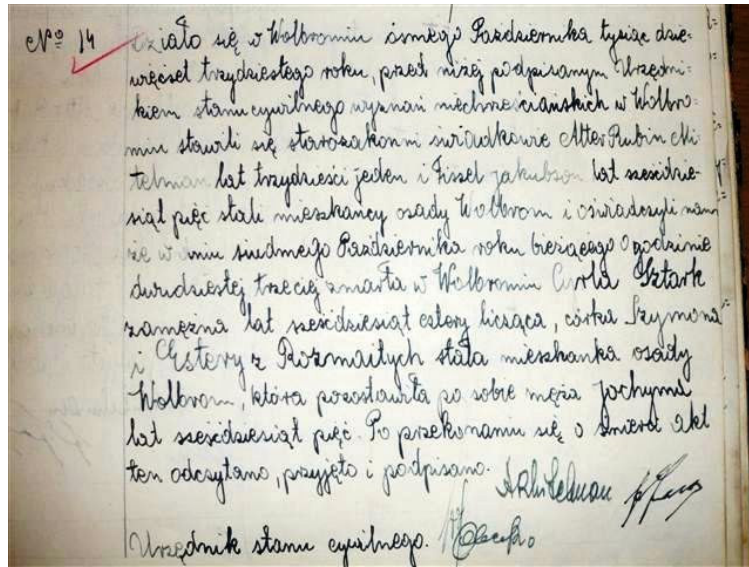 № 14
Działo się w Wolbromiu ósmego Października tysiąc dzie-
więćset trzydziestego roku, przed niżej podpisanym Urzędni-
kiem stanu cywilnego wyznań niechrześciańskich w Wolbro-
miu stawili się starozakonni świadkowie Alter Rubin Mi-
telman lat trzydzieści jeden i Fissel Jakubson lat sześćdzie-
siąt pięć stali mieszkańcy osady Wolbrom i oświadczyli nam
że w dniu siudmego Października roku bieżącego o godzinie
dwudziestej trzeciej zmarła w Wolbromiu Cyrla Sztark
zamężna lat sześćdziesiąt cztery licząca, córka Szymona
i Estery z Rozmaitych stała mieszkanka osady
Wolbrom, która pozostawiła po sobie męża Jochyma
lat sześćdziesiąt pięć. Po przekonaniu się o śmierci akt
ten odczytano, przyjęto i podpisano.
Urzędnik stanu cywilnego.